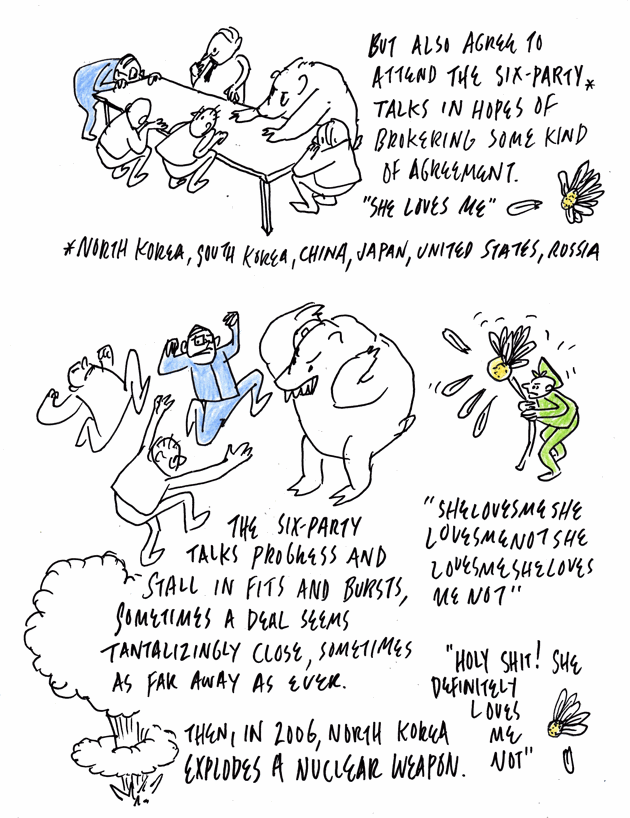 BUT ALSO AGREE TO
ATTEND THE SIX-PARTY*
TALKS IN HOPES OF
BROKERING SOME KIND
OF AGREEMENT.
"SHE LOVES ME"
*NORTH KOREA, SOUTH KOREA, CHINA, JAPAN, UNITED STATES, RUSSIA
"SHELOVESMESHE
LOVESMENOTSHE
LOVESMESHELOVES
ME NOT"
THE SIX-PARTY
TALKS PROGRESS AND
STALL IN FITS AND BURSTS,
SOMETIMES A DEAL SEEMS
TANTALIZINGLY CLOSE, SOMETIMES
AS FAR AWAY AS EVER.
"HOLY SHIT! SHE
DEFINITELY
LOVES
ME
NOT"
THEN, IN 2006, NORTH KOREA
EXPLODES A NUCLEAR WEAPON.